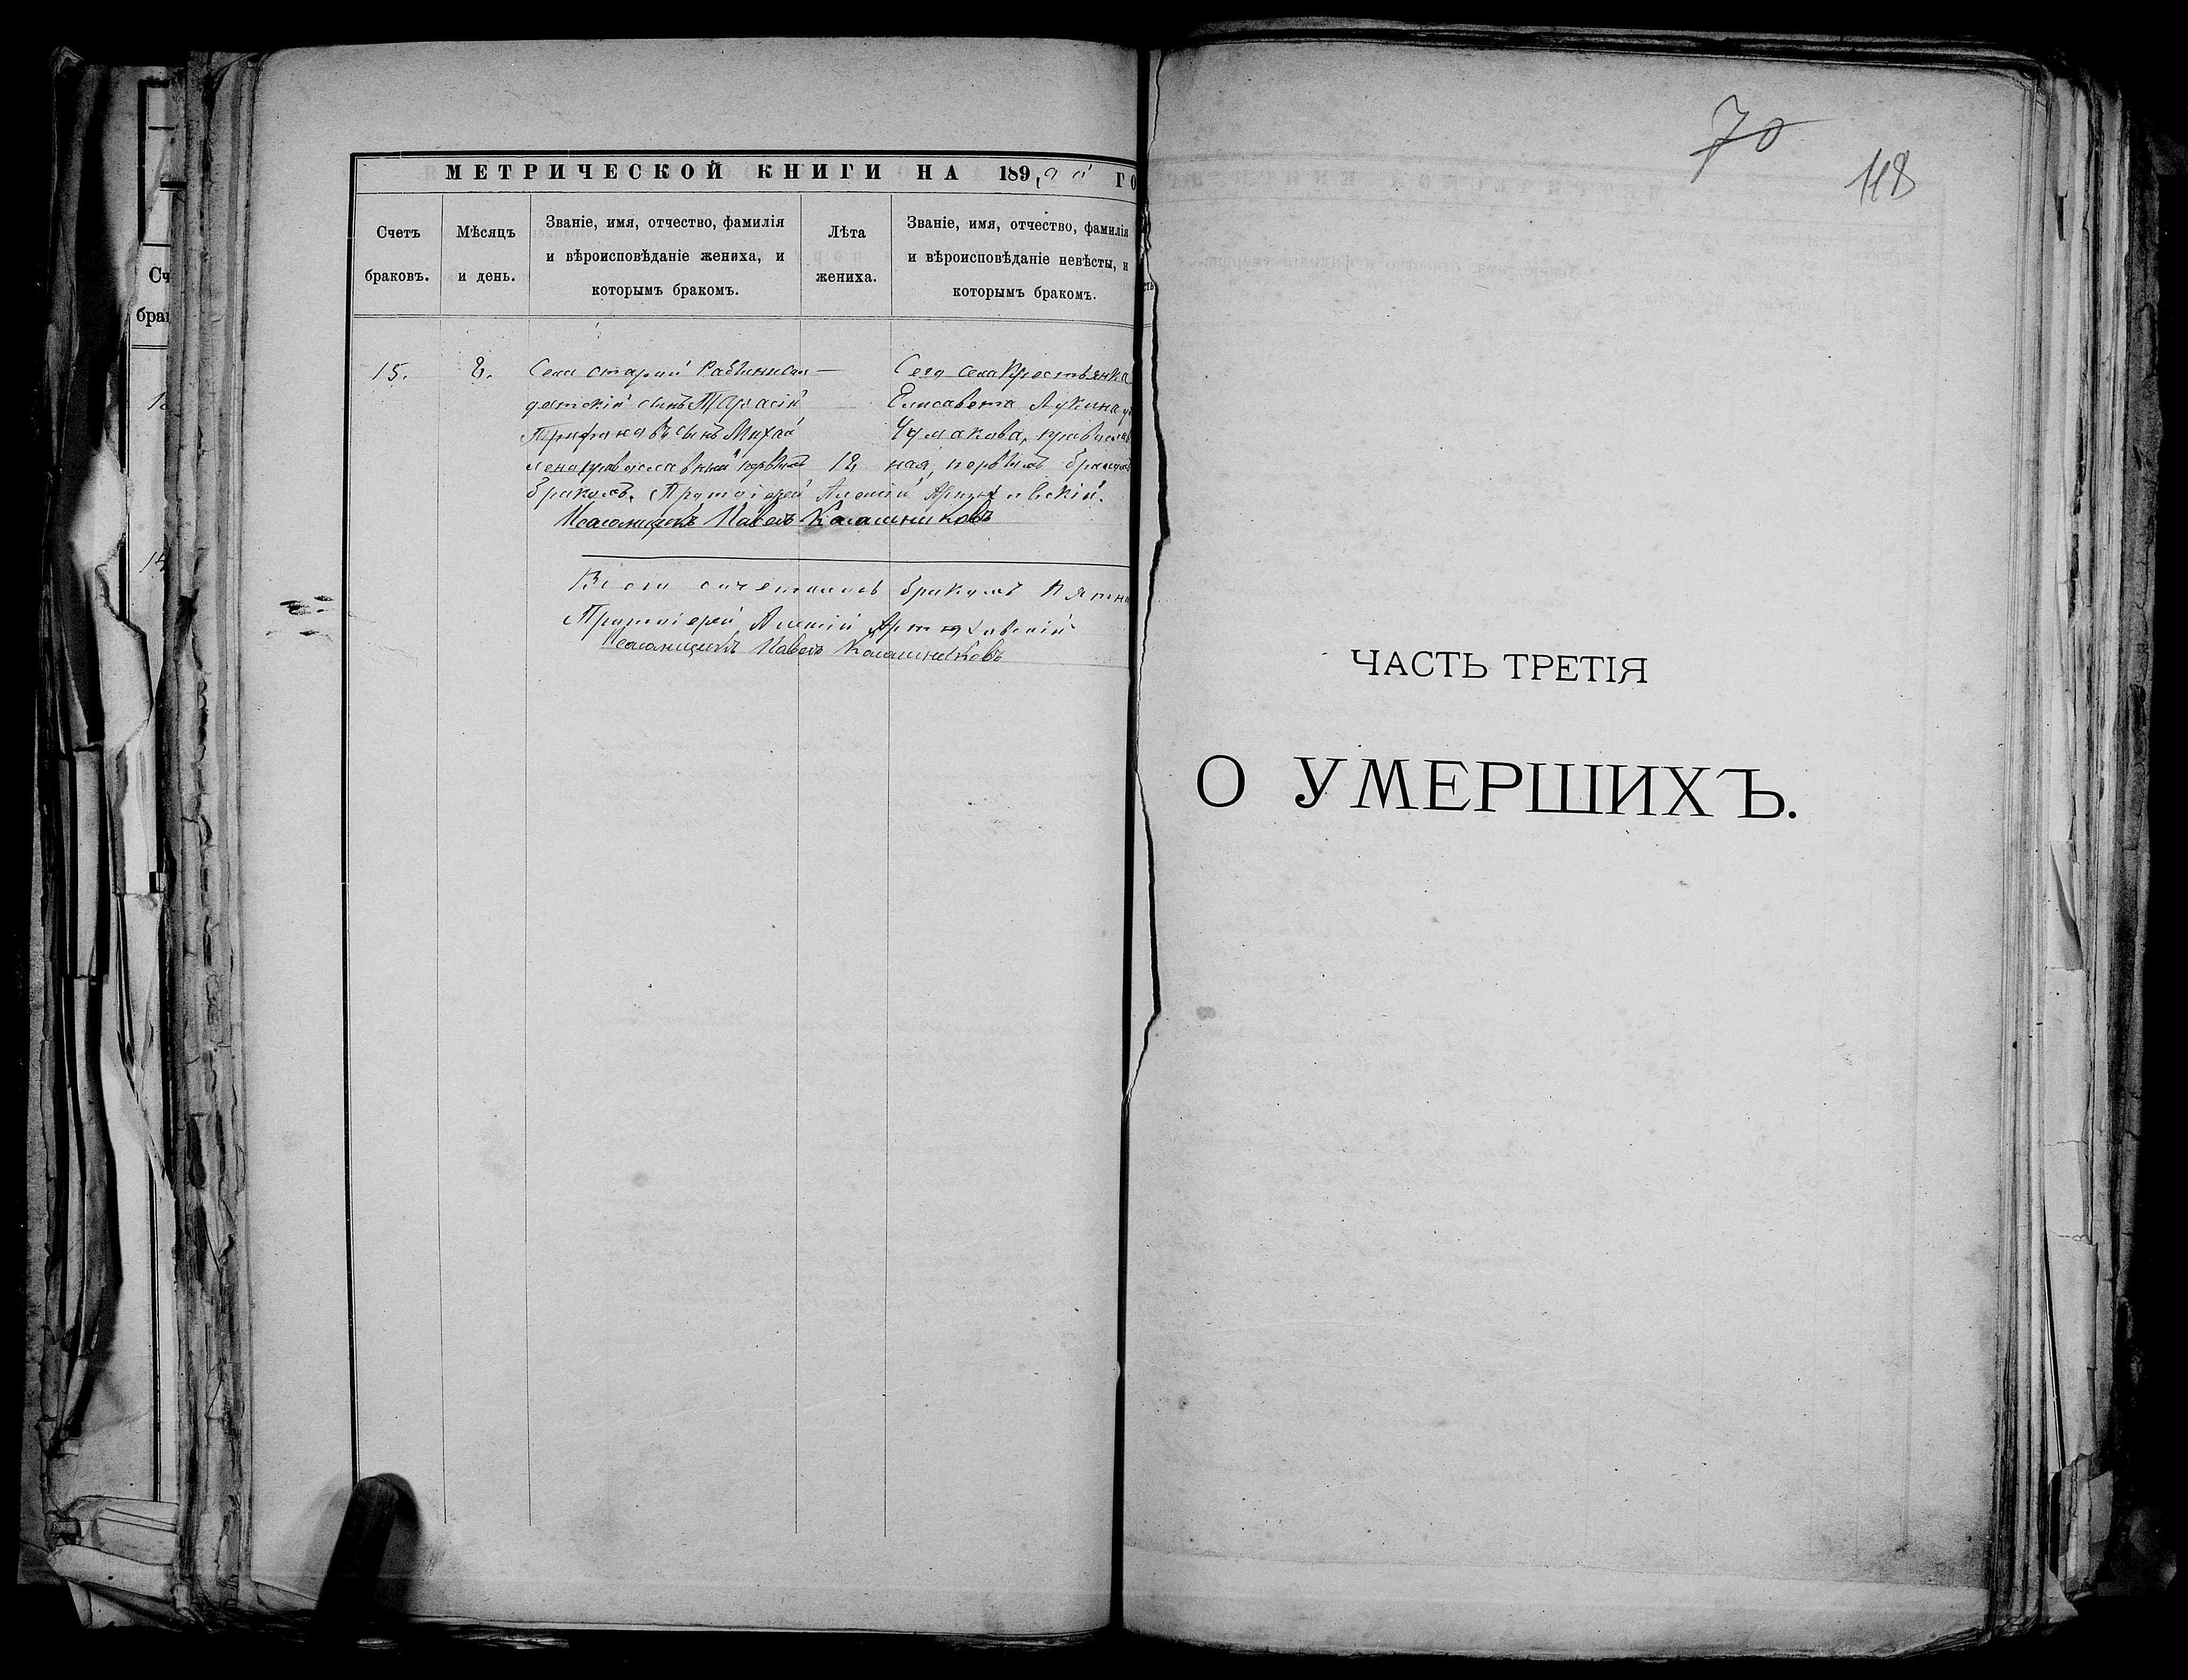 МЕТРИЧЕСКОЙ КНИГИ НА 189 ГО
Счетъ браковъ.
Мѣсяцъ и день.
Званіе, имя, отчество, фамилія
и вѣроисповѣданіе жениха, и
которымъ бракомъ.
Лѣта жениха.
Званіе, имя, отчество, фамилія
и вѣроисповѣданіе невѣсты, и
которымъ бракомъ.
15. 8. Села старый Сего села Крестьянка
сынъ Елисавета Лукина
сынъ Михай Чумакова, православ
лена православный первымъ 18 ная, первымъ бракомъ
бракомъ. Протоіерей Алексій
Псаломщикъ Павелъ Калашниковъ
Всего бракомъ Пятна
Протоіерей Алексій
Псаломщикъ Павелъ Калашниковъ
Сч
бра
14
70
118
ЧАСТЬ ТРЕТІЯ
О УМЕРШИХЪ.